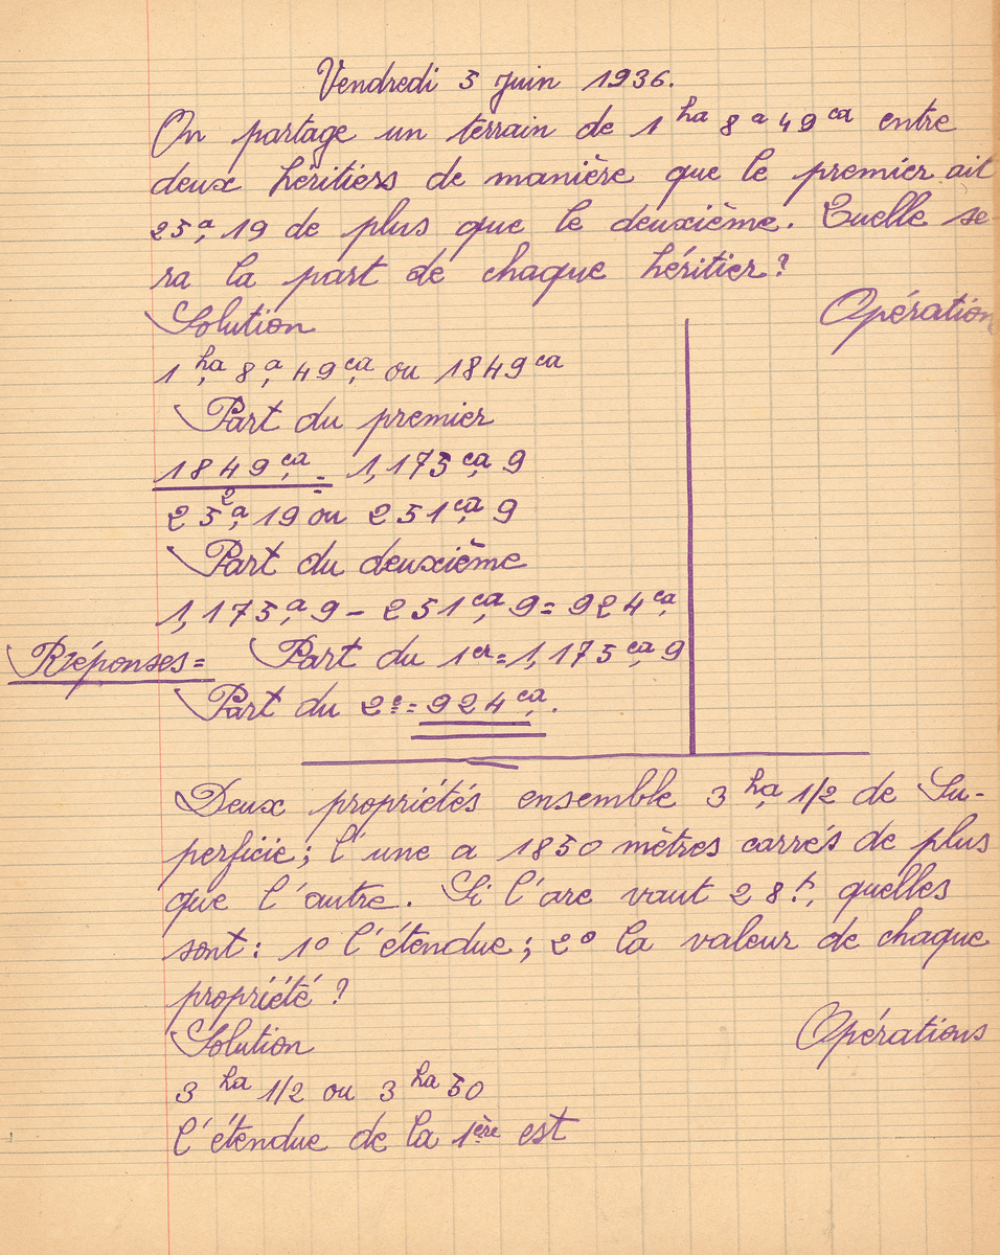 Vendredi 5 Juin 1936.
On partage un terrain de 1 ha 8 a 49 ca entre
deux héritiers de manière que le premier ait
25 a, 19 de plus que le deuxième. Quelle se
ra la part de chaque héritier?
Solution
Opération
1 ha, 8 a, 49 ca, ou 1849 ca
Part du premier
1849 ca, = 1,175 ca, 9
2
25 a, 19 ou 251 ca, 9
Part du deuxième
1,175 a, 9 - 251 ca, 9 = 924 ca,
Réponses = Part du 1er = 1,175 ca, 9
Part du 2e = 924 ca,.
Deux propriétés ensemble 3 ha, 1/2 de Su-
perficie; l'une a 1850 mètres carrés de plus
que l'autre. Si l'are vaut 28 f, quelles
sont: 1° l'étendue; 2° la valeur de chaque
propriété?
Solution
Opérations
3 ha 1/2 ou 3 ha 50
l'étendue de la 1ère est